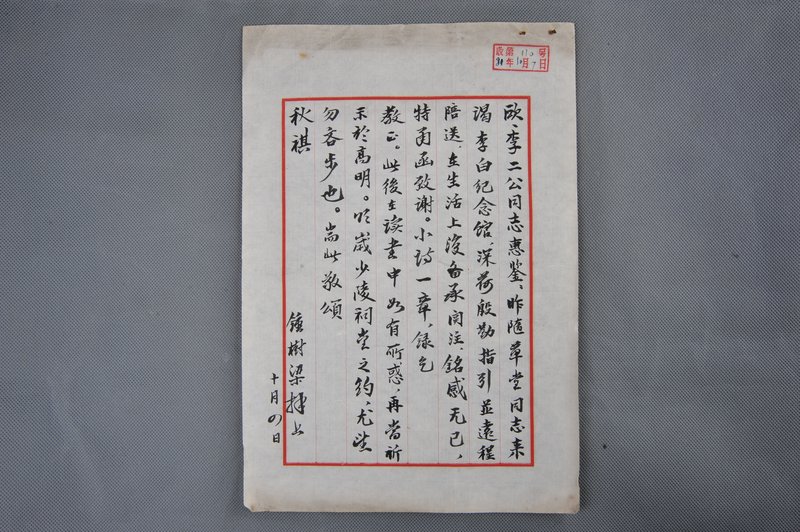 收第110号
81年10月7日
欧、李二公同志惠鉴、昨随草堂同志来
谒李白纪念馆、深荷殷勤指引並遠程
陪送、在生活上後备承関注、铭感无已，
特甬函致谢。小詩一章、録乞
教正。此後在读書中如有所惑、再當祈
示於高明。明歲少陵祠堂之约、尤望
勿吝步也。耑此敬頌
秋祺
鍾樹梁拜上
十月四日